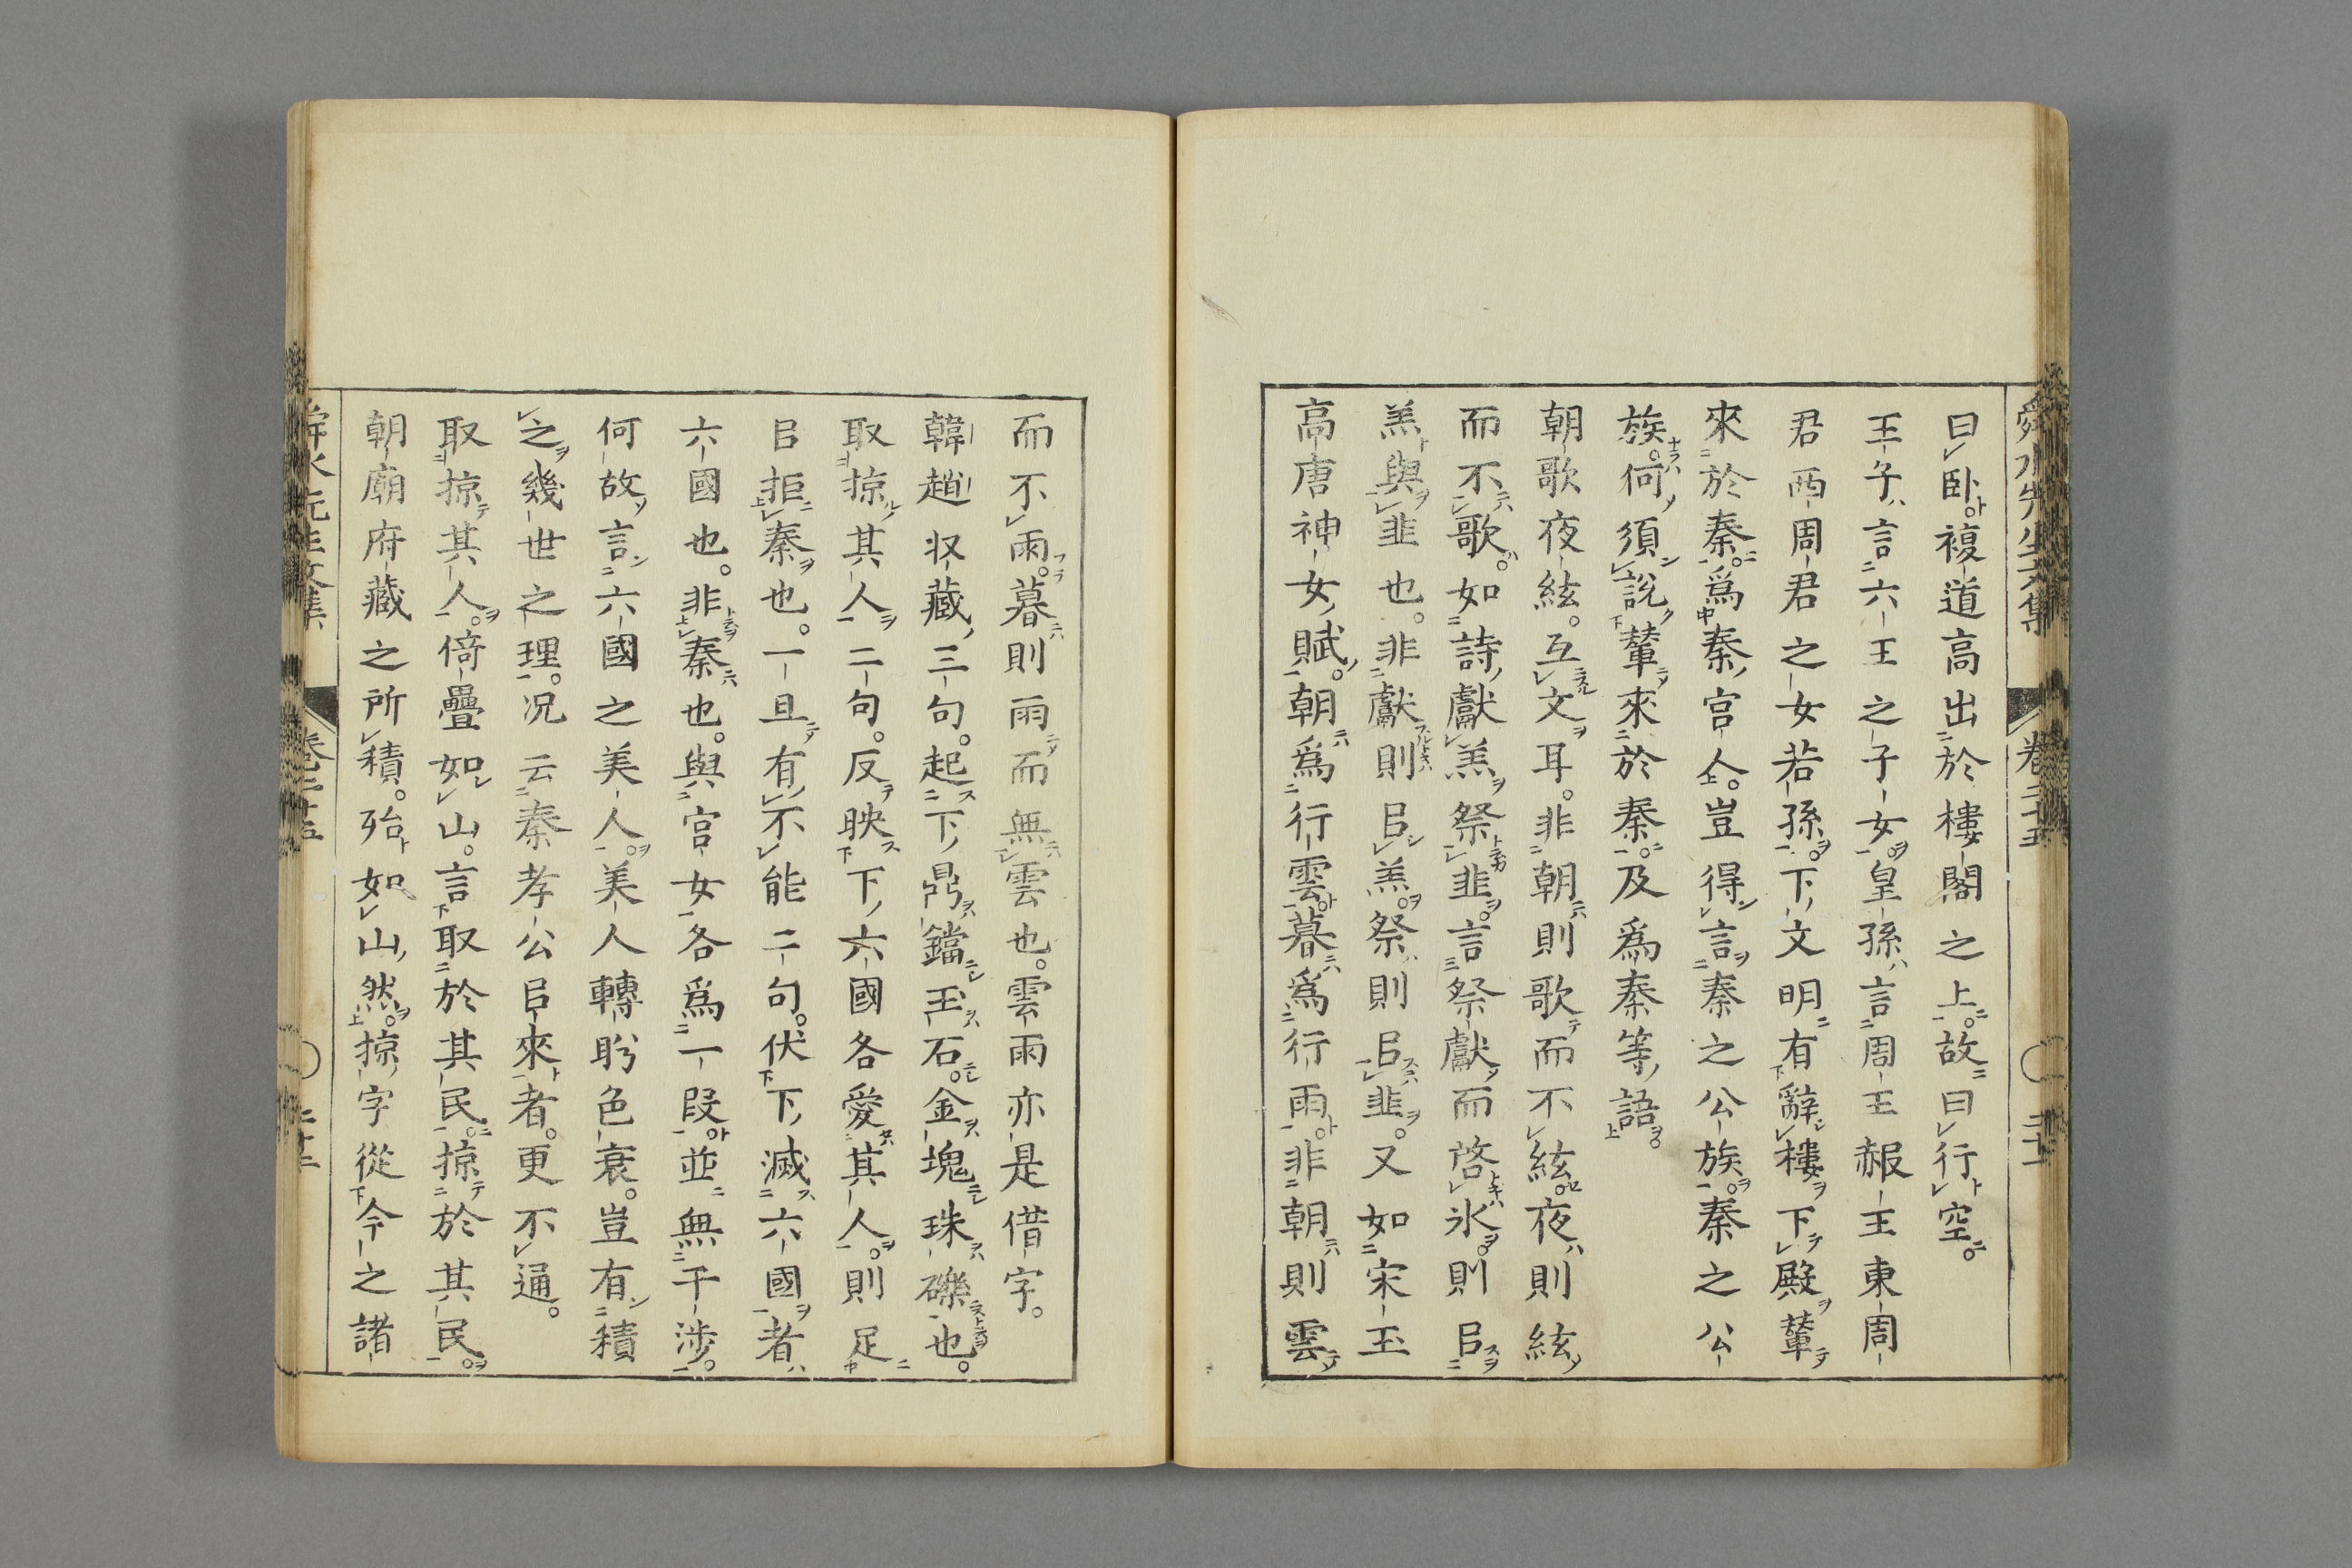 舜水先生文集 卷二十五 二十一
曰臥複道高出於樓閣之上故曰行空
王子言六王之子女皇孫言周王赧王東周
君西周君之女若孫下文明有辭樓下殿輦
來於秦爲秦宮人豈得言秦之公族秦之公
族何須說輦來於秦及爲秦等語
朝歌夜絃互文耳非朝則歌而不絃夜則絃
而不歌如詩獻羔祭韭言祭獻而啓冰則㠯
羔與韭也非獻則㠯羔祭則㠯韭又如宋玉
高唐神女賦朝爲行雲暮爲行雨非朝則雲
而不雨暮則雨而無雲也雲雨亦是借字
韓趙収藏三句起下鼎鐺玉石金塊珠礫也
取掠其人二句反映下六國各愛其人則足
㠯拒秦也一旦有不能二句伏下滅六國者
六國也非秦也與宮女各爲一段並無干涉
何故言六國之美人美人轉盻色衰豈有積
之幾世之理況云秦孝公㠯來者更不通
取掠其人倚疊如山言取於其民掠於其民
朝廟府藏之所積殆如山然掠字從今之諸
舜水先生文集 卷二十五 二十二